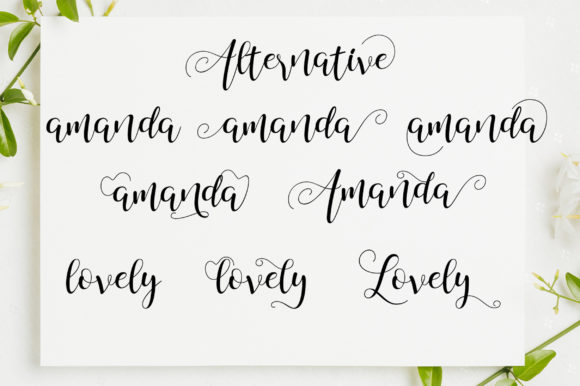 Alternative
amanda amanda amanda
amanda Amanda
lovely lovely Lovely